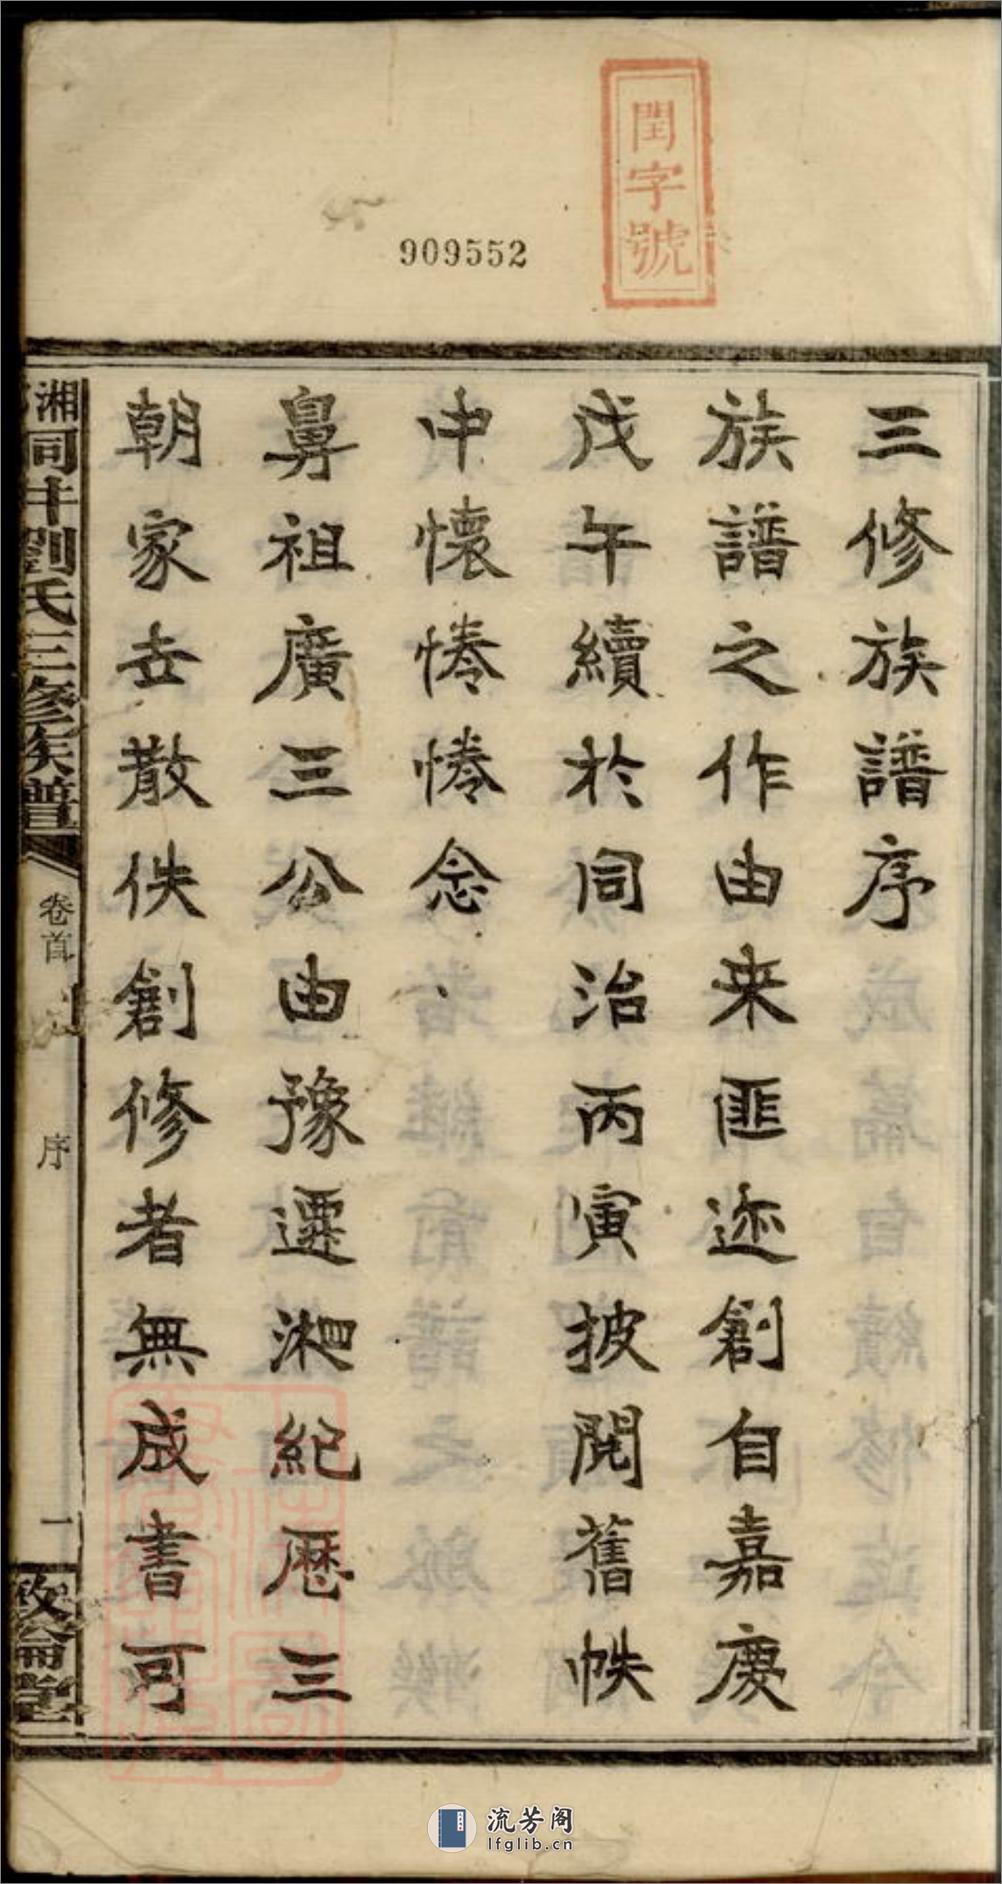 閏字號
909552
三修族譜序
族譜之作由来匪迩創自嘉慶
戊午續於同治丙寅披閱舊帙
中懷惓惓念
鼻祖廣三公由豫遷湘紀歷三
朝家乘散佚創修者無成書可
湘同井劉氏三修族譜
卷首
序
一
敦倫堂
流芳阁
lfglib.cn